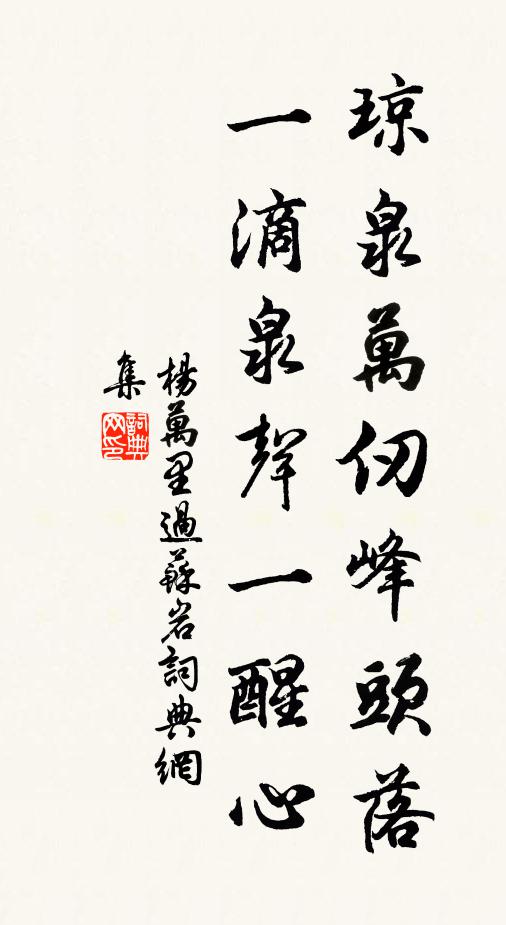 琼泉萬仞峰頭落
一滴泉聲一醒心
楊萬里過蘇岩詞典網
集
詞典
网印